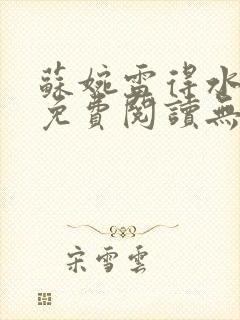 蘇婉雷得水
免費閱讀無
宋雪雲